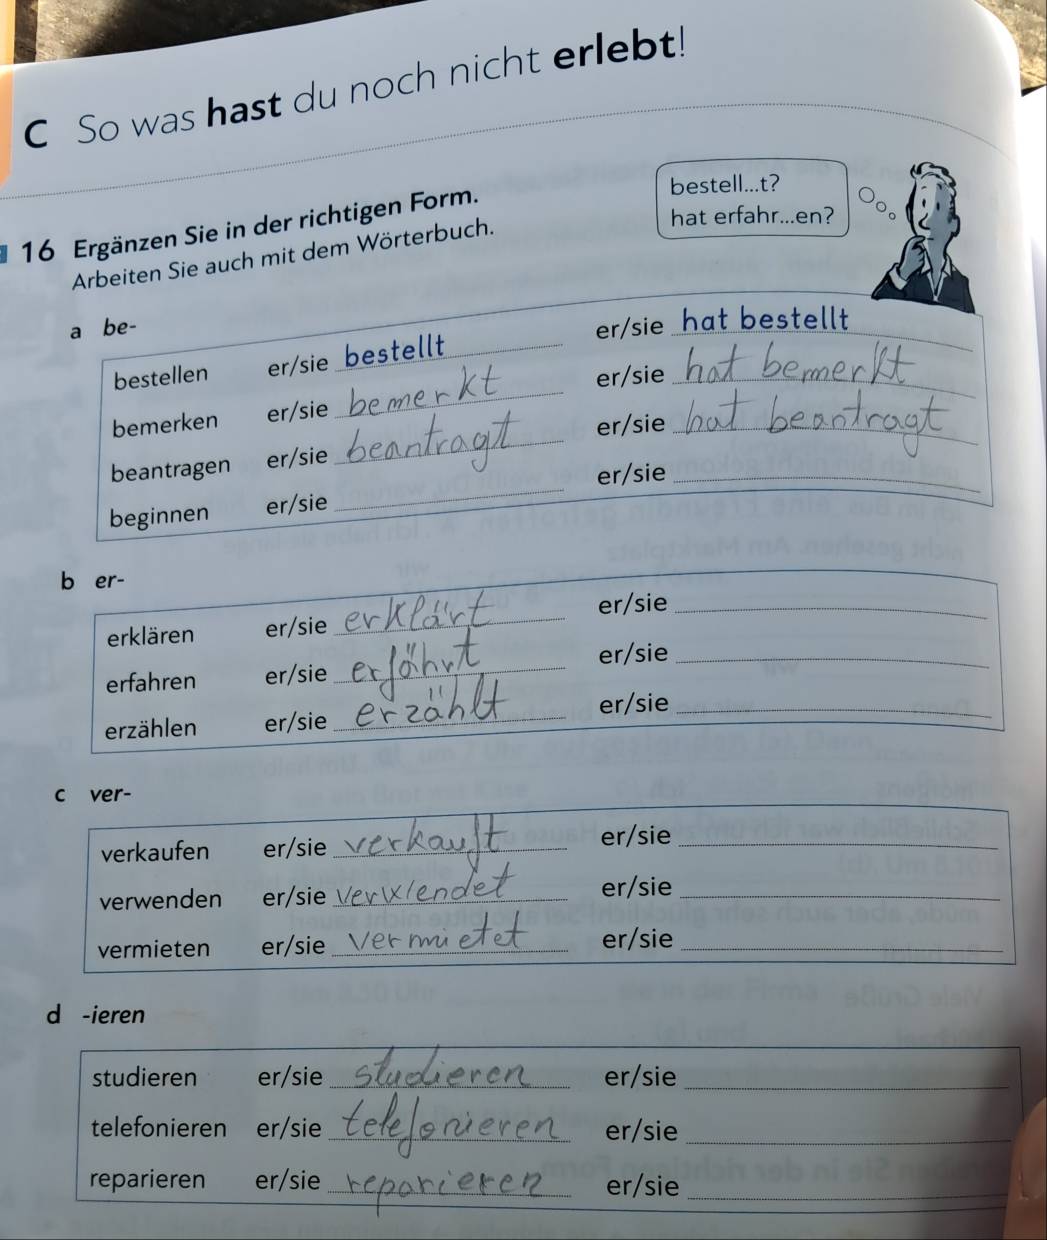 C So was hast du noch nicht erlebt!
bestell...t?
hat erfahr...en?
16 Ergänzen Sie in der richtigen Form.
Arbeiten Sie auch mit dem Wörterbuch.
a be-
bestellen er/sie bestellt er/sie hat bestellt
bemerken er/sie bemerkt er/sie hat bemerkt
beantragen er/sie beantragt er/sie hat beantragt
beginnen er/sie er/sie
b er-
erklären er/sie erklärt er/sie
erfahren er/sie erfährt er/sie
erzählen er/sie erzählt er/sie
c ver-
verkaufen er/sie verkauft er/sie
verwenden er/sie verwendet er/sie
vermieten er/sie vermietet er/sie
d -ieren
studieren er/sie studieren er/sie
telefonieren er/sie telefonieren er/sie
reparieren er/sie reparieren er/sie